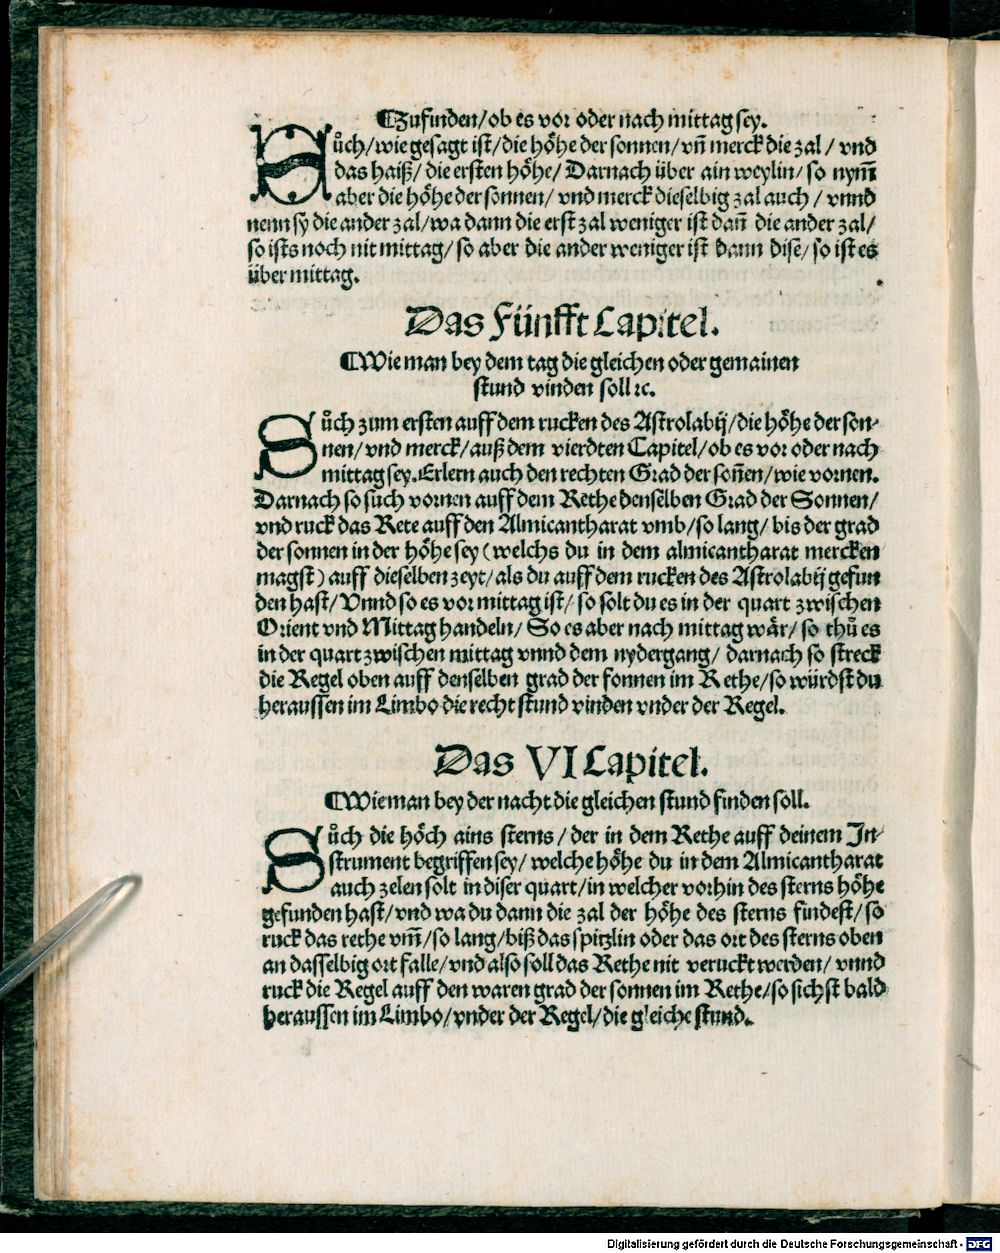 ¶Zufinden/ob es vor oder nach mittag sey.
Sůch/wie gesagt ist/die höhe der sonnen/vn̄ merck die zal/ vnd
das haiß/ die ersten höhe/ Darnach über ain weylin/ so nym̄
aber die höhe der sonnen/ vnd merck dieselbig zal auch / vnnd
nenn sy die ander zal/wa dann die erst zal weniger ist dan̄ die ander zal/
so ists noch nit mittag/ so aber die ander weniger ist dann dise/ so ist es
über mittag.
Das Fünfft Capitel.
¶Wie man bey dem tag die gleichen oder gemainen
stund vinden soll ꝛc.
Sůch zum ersten auff dem rucken des Astrolabij/die höhe der son-
nen/vnd merck/auß dem vierdten Capitel/ob es vor oder nach
mittag sey. Erlern auch den rechten Grad der son̄en/wie vornen.
Darnach so such vornen auff dem Rethe denselben Grad der Sonnen/
vnd ruck das Rete auff den Almicantharat vmb/so lang/ bis der grad
der sonnen in der höhe sey (welchs du in dem almicantharat mercken
magst) auff dieselben zeyt/als du auff dem rucken des Astrolabij gefun
den hast/Vnnd so es vor mittag ist/ so solt du es in der quart zwischen
Orient vnd Mittag handeln/ So es aber nach mittag wär/ so thů es
in der quart zwischen mittag vnnd dem nydergang/ darnach so streck
die Regel oben auff denselben grad der sonnen im Rethe/so würdst du
heraussen im Limbo die recht stund vinden vnder der Regel.
Das VI Capitel.
¶Wie man bey der nacht die gleichen stund finden soll.
Sůch die höch ains sterns / der in dem Rethe auff deinem In-
strument begriffen sey/ welche höhe du in dem Almicantharat
auch zelen solt in diser quart/in welcher vorhin des sterns höhe
gefunden hast/vnd wa du dann die zal der höhe des sterns findest/ so
ruck das rethe vm̄/so lang/biß das spitzlin oder das ort des sterns oben
an dasselbig ort falle/vnd also soll das Rethe nit veruckt werden/ vnnd
ruck die Regel auff den waren grad der sonnen im Rethe/so sichst bald
heraussen im Limbo/vnder der Regel/die gleiche stund.
Digitalisierung gefördert durch die Deutsche Forschungsgemeinschaft - DFG